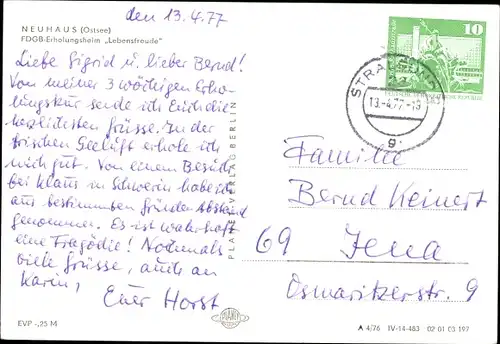 den 13.4.77
NEUHAUS (Ostsee)
FDGB-Erholungsheim „Lebensfreude"
Liebe Sigrid u. lieber Bernd!
Von meiner 3 wöchigen Erho-
lungskur sende ich Euch die
herzlichsten Grüsse. In der
frischen Seeluft erhole ich
mich gut. Von einem Besuch
bei Klaus in Schwerin habe ich
aus bestimmten Gründen Abstand
genommen. Es ist wahrhaft
eine Tragödie! Nochmals
viele Grüsse, auch an
Karin,
Euer Horst
EVP -,25 M
PLANET-VERLAG BERLIN
PLANET
10
STRALSUND
13.-4.77.-18
g
Familie
Bernd Keinert
69 Jena
Osmaritzerstr. 9
A 4/76 IV-14-483 02 01 03 197